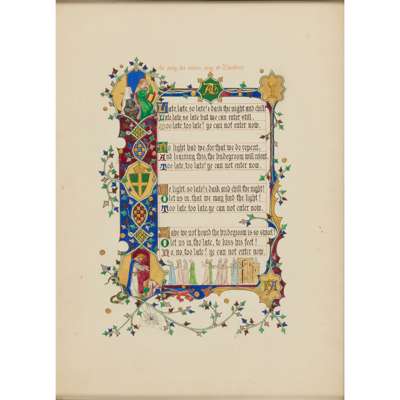 the song the novice sang to
Late, late, so late! & dark the night and chill!
Late, late, so late! but we can enter still.
Too late, too late! ye can not enter now.
No light had we: for that we do repent;
And learning this, the bridegroom will relent.
Too late, too late! ye can not enter now.
No light, so late! & dark and chill the night!
O let us in, that we may find the light!
Too late, too late: ye can not enter now.
Have we not heard the bridegroom is so sweet?
O let us in, tho' late, to kiss his feet!
No, no, too late! ye can not enter now.